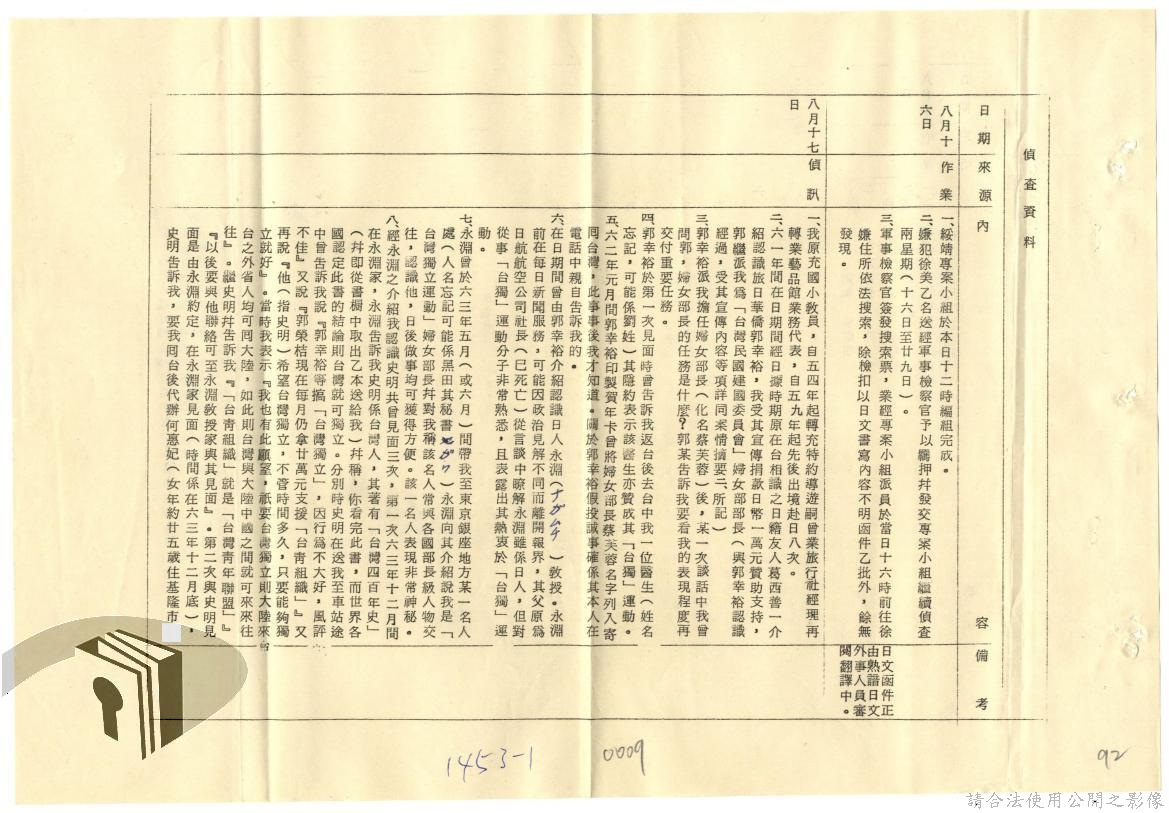 偵查資料
日期
來源
內容
備考
八月十
六日
作業
一、綏靖專案小組於本日十二時編組完成。
二、嫌犯徐美乙名送經軍事檢察官予以羈押幷發交專案小組繼續偵查
兩星期(十六日至廿九日)。
三、軍事檢察官簽發搜索票,業經專案小組派員於當日十六時前往徐
嫌住所依法搜索,除檢扣以日文書寫內容不明函件乙批外,餘無
發現。
日文函件正
由熟諳日文
外事人員審
閱翻譯中。
八月十七
日
偵訊
一、我原充國小敎員,自五四年起轉充特約導遊嗣曾業旅行社經理再
轉業藝品館業務代表,自五九年起先後出境赴日八次。
二、六一年間在日日期間經日據時期原在台相識之日籍友人葛西善一介
紹認識旅日華僑郭幸裕,我受其宣傳捐款日幣一萬元贊助支持,
郭繼派我為「台灣民國建國委員會」婦女部部長(與郭幸裕認識
經過,受其宣傳內容等項詳同案情摘要二所記)
三、郭幸裕派我擔任婦女部長(化名蔡芙蓉)後,某一次談話中我曾
問郭,婦女部長的任務是什麼?郭某告訴我要看我的表現程度再
交付重要任務。
四、郭幸裕於第一次見面時曾告訴我返台後去台中找一位醫生(姓名
忘記,可能係劉姓)其隱約表示該醫生亦贊成其「台獨」運動。
五、六二年元月間郭幸裕印製賀年卡曾將婦女部長蔡芙蓉名字列入寄
囘台灣,此事事後我才知道。關於郭幸裕假投誠事確係其本人在
電話中親自告訴我的。
六、在日期間曾由郭幸裕介紹認識日人永淵(ナガムチ)敎授。永淵
前在每日新聞服務,可能因政治見解不同而離開報界,其父原為
日航航空公司社長(已死亡)從言談中瞭解永淵雖係日人,但對
從事「台獨」運動分子非常熟悉,且表露出其熱衷於「台獨」運
動。
七、永淵曾於六三年五月(或六月)間帶我至東京銀座地方某一名人
處(人名忘記可能係黑田其秘書)永淵向其介紹說我是「
台灣獨立運動」婦女部長幷對我稱該名人常與各國部長級人物交
往,認識他,日後做事均可獲得方便。該一名人表現非常神秘。
八、經永淵之介紹我認識史明共曾見面三次,第一次六三年十二月間
在永淵家,永淵告訴我史明係台灣人,其著有「台灣四百年史」
(幷即從書櫥中取出乙本送給我)幷稱,你看完此書,而世界各
國認定此書的結論則台灣就可獨立。分別時史明在送我至車站途
中曾告訴我說『郭幸裕等搞「台灣獨立」,因行為不大好,風評
不佳』又說『郭榮桔現在每月仍拿廿萬元支援「台青組織」』又
再說『他(指史明)希望台灣獨立,不管時間多久,只要能夠獨
立就好』。當時我表示『我也有此願望,祇要台灣獨立則大陸來
台之外省人均可囘大陸,如此則台灣與大陸中國之間就可來來往
往』。繼史明幷告訴我『「台青組織」就是「台灣青年聯盟」』
『以後要與他聯絡可至永淵敎授家與其見面』。第二次與史明見
面是由永淵約定,在永淵家見面(時間係在六三年十二月底),
史明告訴我,要我囘台後代辦何惠妃(女年約廿五歲住基隆市
1453-1
0009
92
請合法使用公開之影像